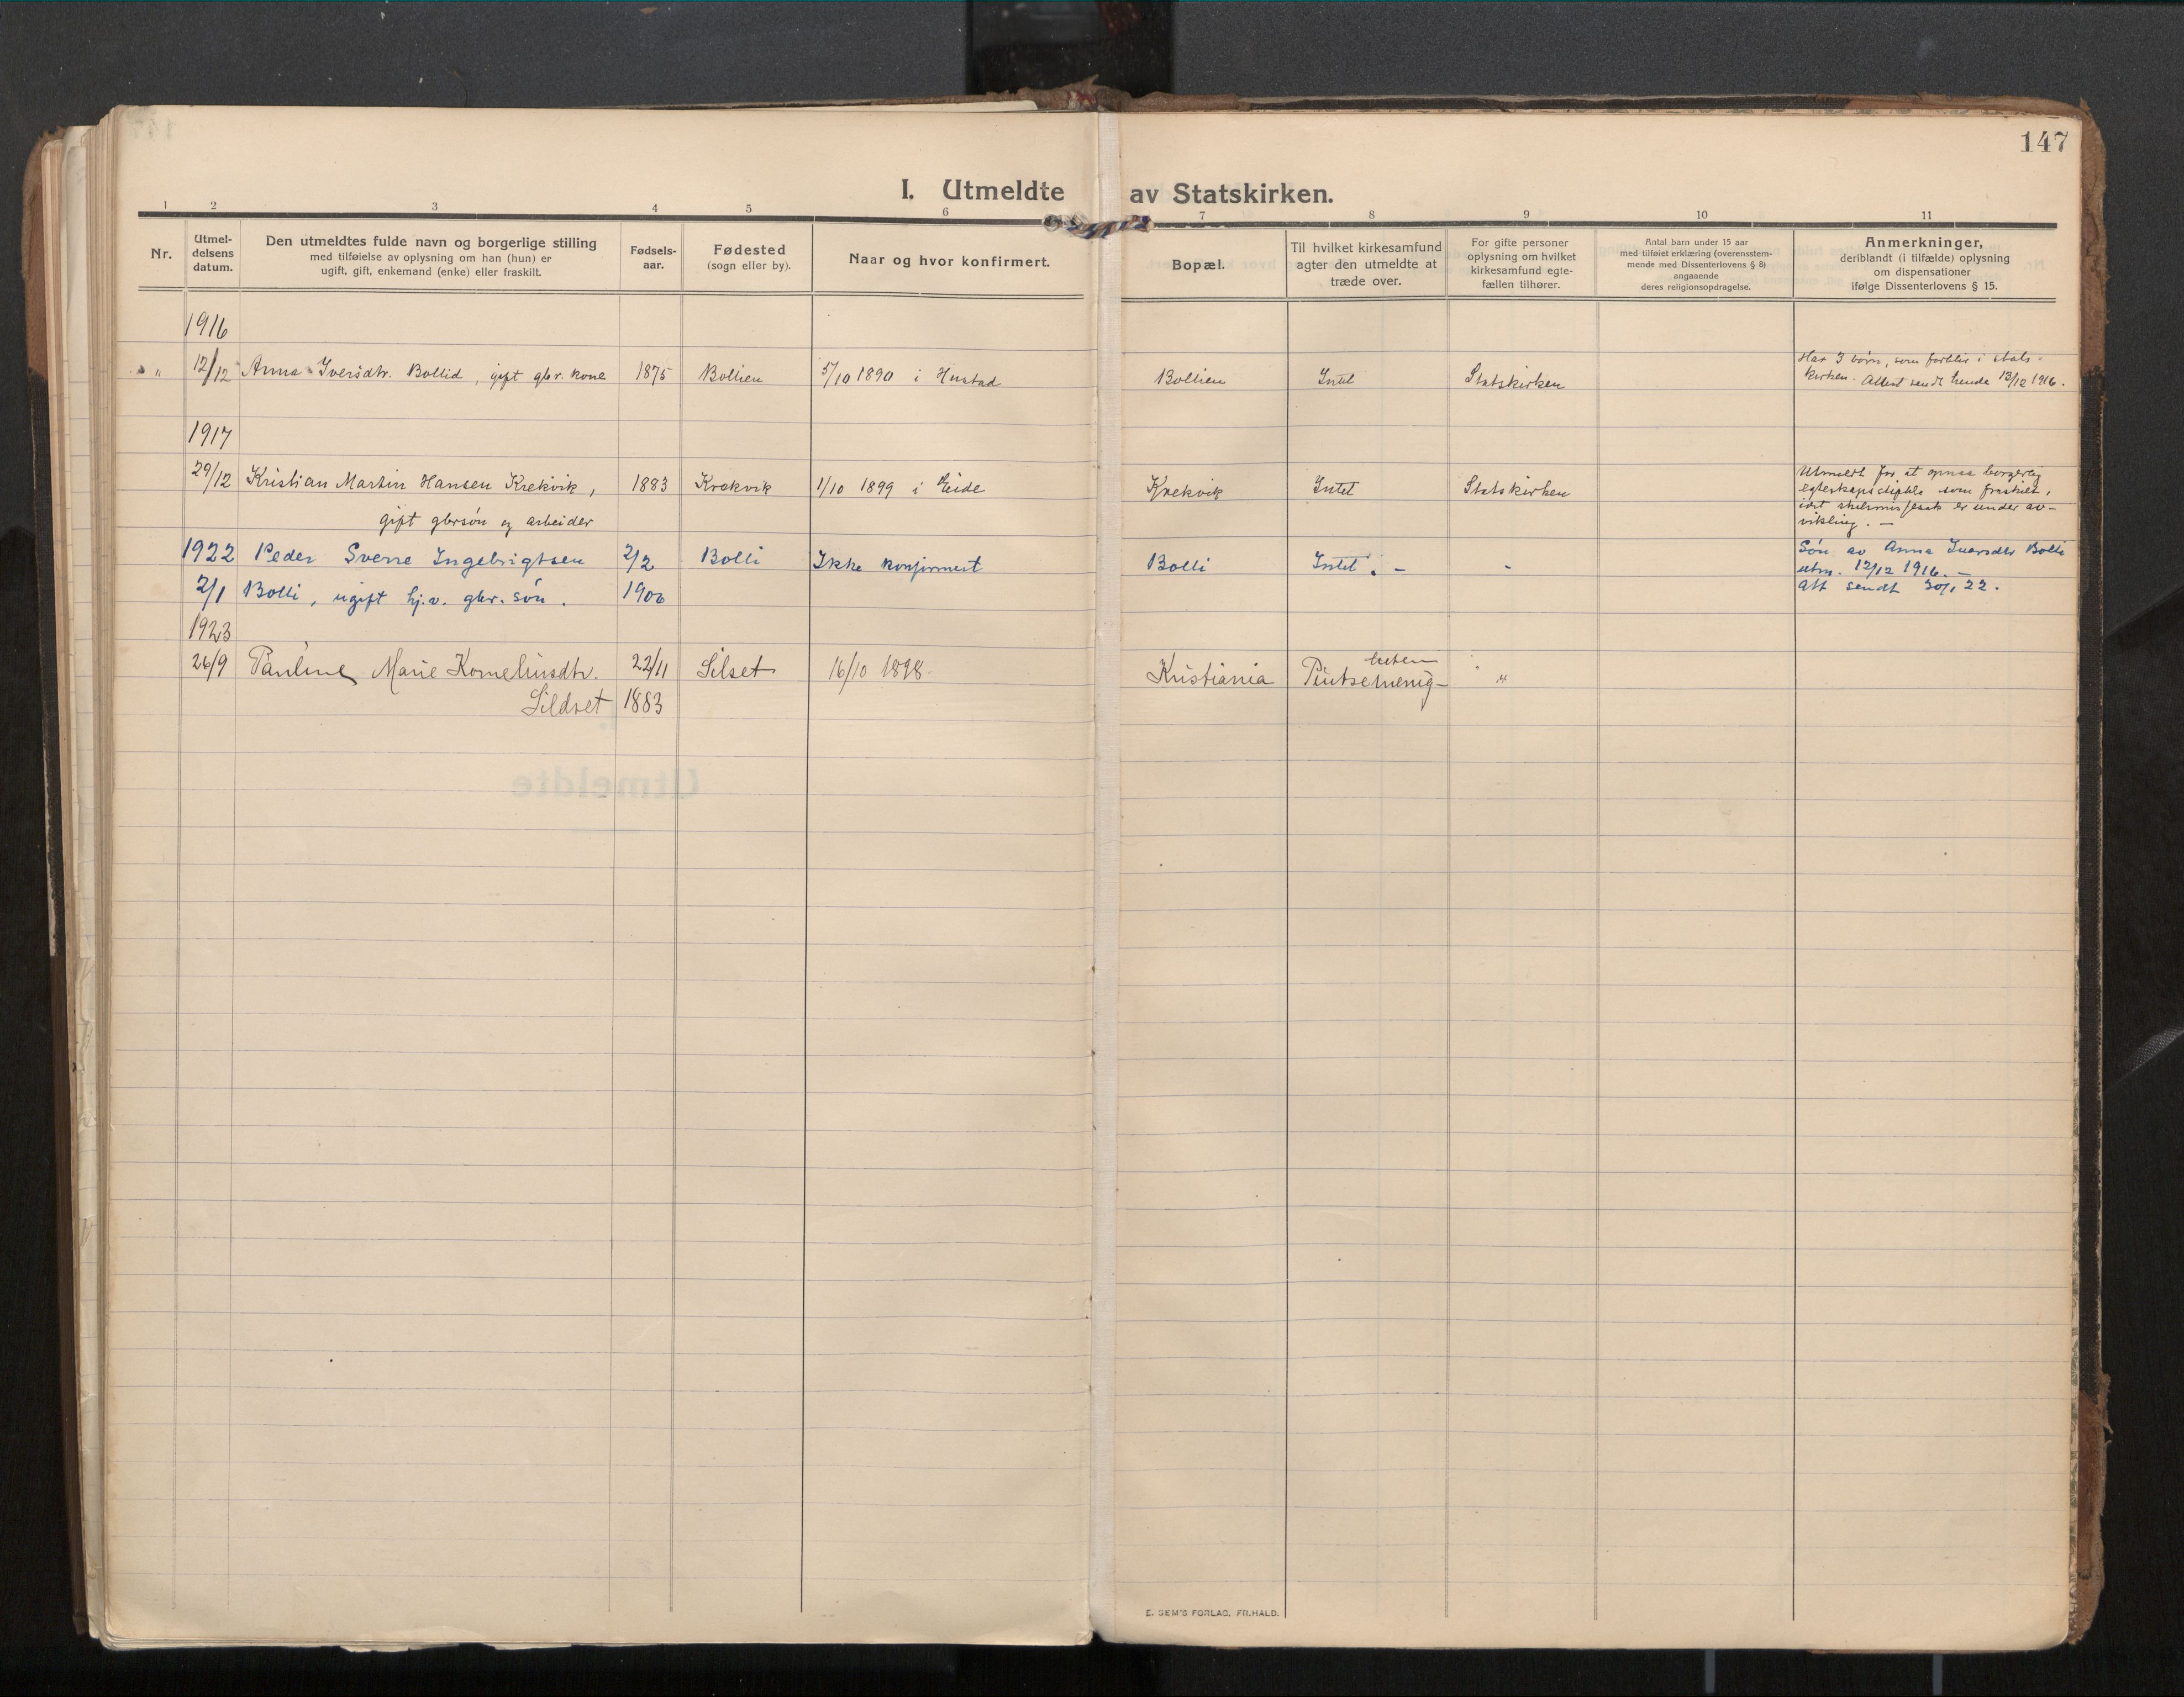 147
I. Utmeldte av Statskirken.
1 2 3 4 5 6 7 8 9 10 11
Nr.
Utmel-
delsens
datum.
Den utmeldtes fulde navn og borgerlige stilling
med tilføielse av oplysning om han (hun) er
ugift, gift, enkemand (enke) eller fraskilt.
Fødsels-
aar.
Fødested
(sogn eller by).
Naar og hvor konfirmert.
Bopæl.
Til hvilket kirkesamfund
agter den utmeldte at
træde over.
For gifte personer
oplysning om hvilket
kirkesamfund egte-
fællen tilhører.
Antal barn under 15 aar
med tilføiet erklæring (overensstem-
mende med Dissenterlovens § 8)
angaaende
deres religionsopdragelse.
Anmerkninger,
deriblandt (i tilfælde) oplysning
om dispensationer
ifølge Dissenterlovens § 15.
1916
" 12/12 Anna Iversdtr. Bollid, gift gbr. kone 1875 Bollien 5/10 1890 i Hustad Bollien Intet Statskirken
Har 3 børn, som forblir i stats-
kirken. Attest sendt hende 13/12 1916.
1917
29/12 Kristian Martin Hansen Krekvik, 1883 Krekvik 1/10 1899 i Eide Krekvik Intet Statskirken
gift gbrsøn og arbeider
Utmeldt for at opnaa borgerlig
som fraskilt,
er under av-
vikling. —
1922 Peder Sverre Ingebrigtsen 2/2 Bolli Ikke konfirmert Bolli Intet. - -
2/1 Bolli, ugift hj.v. gbr. søn. 1906
Søn av Anna Iversdtr Bolli
utm. 12/12 1916. —
Att sendt 30/1 22.
1923
26/9 Pauline Marie Korneliusdtr. 22/11 Silset 16/10 1898. Kristiania Pintsemenig- "
heten
Sildset 1883
Utmeldte
E. SEM'S FORLAG, FR.HALD.